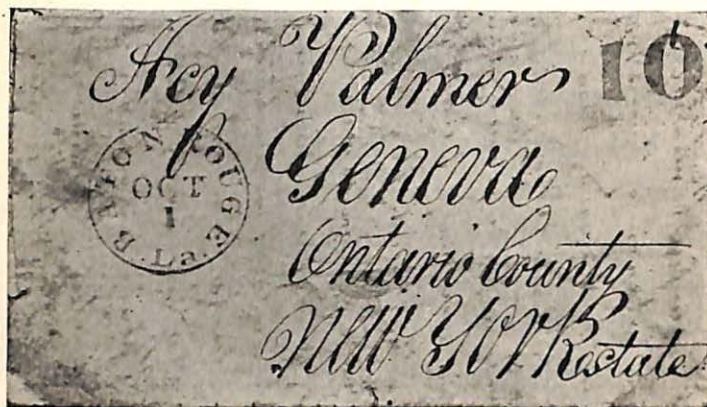 Hcy Palmer 10
BATON ROUGE
OCT
1
La.
Geneva
Ontario County
New York state